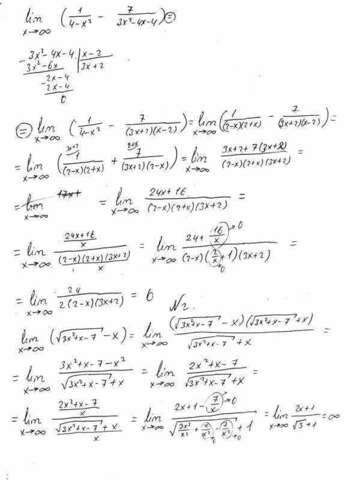 lim x→∞ (1/(4-x²) - 7/(3x²-4x-4)) =
-3x²-4x-4 | x-2
3x²-6x | 3x+2
-2x-4
2x-4
0
= lim x→∞ (1/(4-x²) - 7/((3x+2)(x-2))) = lim x→∞ (1/((2-x)(2+x)) - 7/((3x+2)(x-2))) =
= lim x→∞ (1/((2-x)(2+x)) + 7/((3x+2)(2-x))) = lim x→∞ (3x+2+7(3x+2))/((2-x)(2+x)(3x+2)) =
= lim x→∞ = lim x→∞ (24x+16)/((2-x)(2+x)(3x+2)) =
= lim x→∞ ((24x+16)/x)/(((2-x)(2+x)(3x+2))/x) = lim x→∞ (24+16/x →0)/((2-x)(2/x →0 +1)(3x+2)) =
= lim x→∞ 24/(2(2-x)(3x+2)) = 0 N2.
lim x→∞ (√(3x²+x-7) - x) = lim x→∞ ((√(3x²+x-7) - x)(√(3x²+x-7) + x))/(√(3x²+x-7) + x) =
= lim x→∞ (3x²+x-7-x²)/(√(3x²+x-7) + x) = lim x→∞ (2x²+x-7)/(√(3x²+x-7) + x) =
= lim x→∞ ((2x²+x-7)/x)/((√(3x²+x-7) + x)/x) = lim x→∞ (2x+1-7/x →0)/(√(3x²/x² + x/x² →0 - 7/x² →0) + 1) = lim x→∞ (2x+1)/(√3+1) = ∞